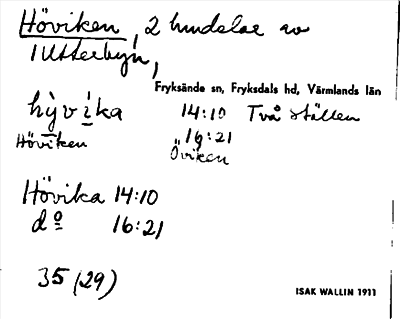 Höviken, 2 hundelar av
1 Utterbyn,
Fryksände sn, Fryksdals hd, Värmlands län
hy̆vika 14:10 Två ställen
Höviken 16:21
Öviken
Hövika 14:10
dº 16:21
35 (29)
ISAK WALLIN 1911